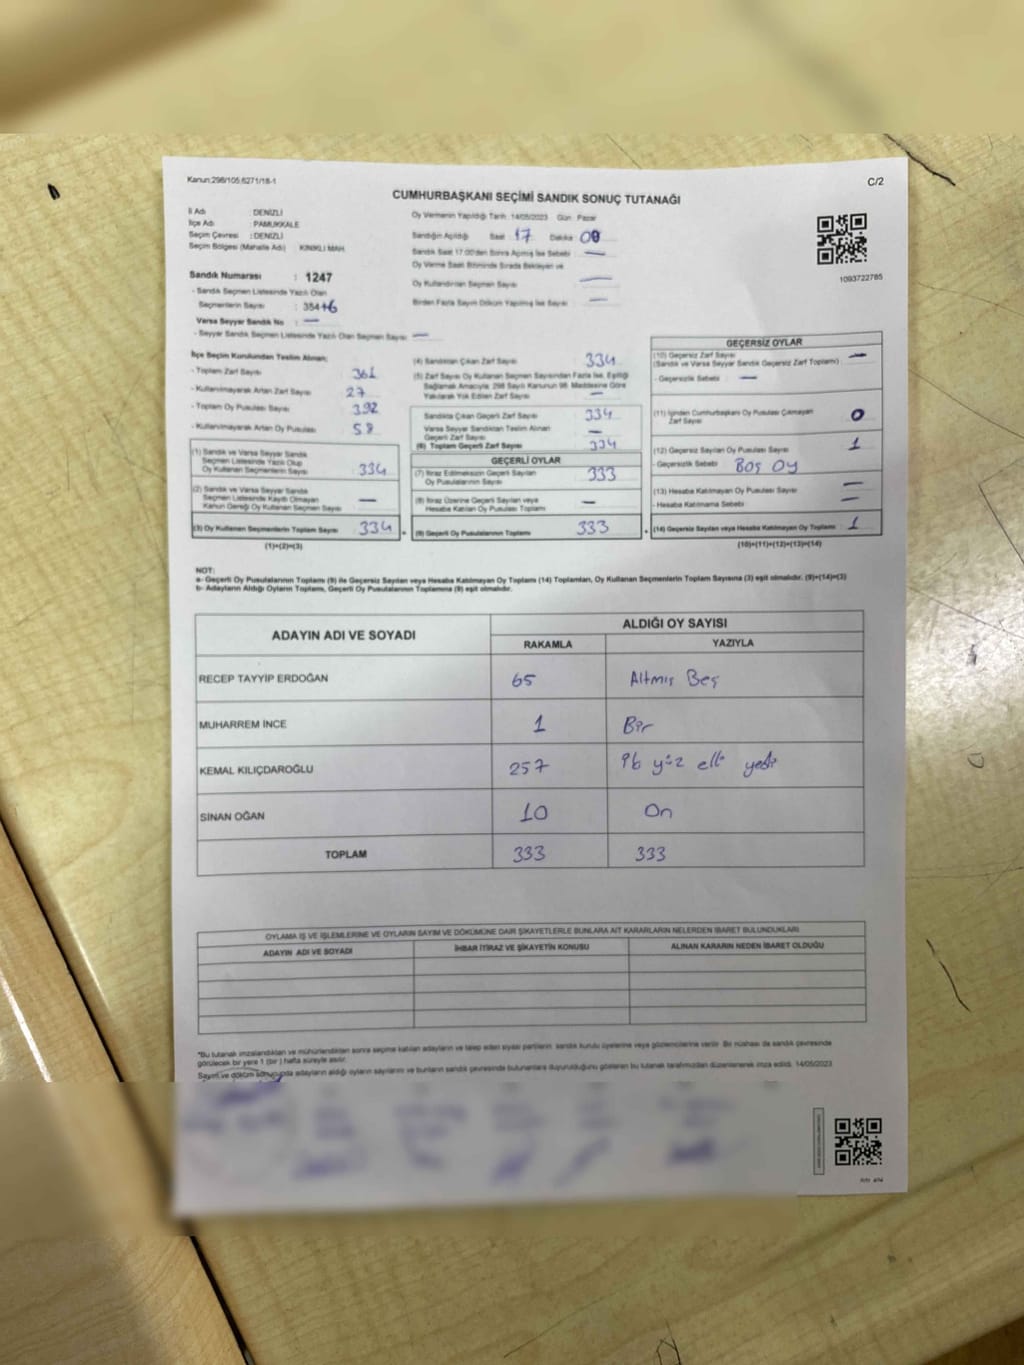 Kanun:298/105;6271/18-1
C/2
CUMHURBAŞKANI SEÇİMİ SANDIK SONUÇ TUTANAĞI
İl Adı : DENİZLİ
İlçe Adı : PAMUKKALE
Seçim Çevresi : DENİZLİ
Seçim Bölgesi (Mahalle Adı) KINIKLI MAH.
Sandık Numarası : 1247
- Sandık Seçmen Listesinde Yazılı Olan
Seçmenlerin Sayısı : 354+6
Varsa Seyyar Sandık No : —
- Seyyar Sandık Seçmen Listesinde Yazılı Olan Seçmen Sayısı —
Oy Vermenin Yapıldığı Tarih 14/05/2023 Gün Pazar
Sandığın Açıldığı Saat 17 Dakika 00
Sandık Saat 17:00'den Sonra Açılmış İse Sebebi : —
Oy Verme Saati Bitiminde Sırada Bekleyen ve
Oy Kullandırılan Seçmen Sayısı —
Birden Fazla Sayım Döküm Yapılmış İse Sayısı —
1093722785
İlçe Seçim Kurulundan Teslim Alınan;
- Toplam Zarf Sayısı 361
- Kullanılmayarak Artan Zarf Sayısı 27
- Toplam Oy Pusulası Sayısı 392
- Kullanılmayarak Artan Oy Pusulası 58
(1) Sandık ve Varsa Seyyar Sandık
Seçmen Listesinde Yazılı Olup
Oy Kullanan Seçmenlerin Sayısı : 334
(2) Sandık ve Varsa Seyyar Sandık
Seçmen Listesinde Kayıtlı Olmayan
Kanun Gereği Oy Kullanan Seçmen Sayısı —
(3) Oy Kullanan Seçmenlerin Toplam Sayısı 334
(1)+(2)=(3)
(4) Sandıktan Çıkan Zarf Sayısı 334
(5) Zarf Sayısı Oy Kullanan Seçmen Sayısından Fazla İse, Eşitliği
Sağlamak Amacıyla; 298 Sayılı Kanunun 98. Maddesine Göre
Yakılarak Yok Edilen Zarf Sayısı —
Sandıkta Çıkan Geçerli Zarf Sayısı 334
Varsa Seyyar Sandıktan Teslim Alınan
Geçerli Zarf Sayısı —
(6) Toplam Geçerli Zarf Sayısı 334
GEÇERLİ OYLAR
(7) İtiraz Edilmeksizin Geçerli Sayılan
Oy Pusulalarının Sayısı 333
(8) İtiraz Üzerine Geçerli Sayılan veya
Hesaba Katılan Oy Pusulaları Toplamı —
(9) Geçerli Oy Pusulalarının Toplamı 333
GEÇERSİZ OYLAR
(10) Geçersiz Zarf Sayısı
(Sandık ve Varsa Seyyar Sandık Geçersiz Zarf Toplamı) —
- Geçersizlik Sebebi —
(11) İçinden Cumhurbaşkanı Oy Pusulası Çıkmayan
Zarf Sayısı 0
(12) Geçersiz Sayılan Oy Pusulası Sayısı 1
- Geçersizlik Sebebi Boş Oy
(13) Hesaba Katılmayan Oy Pusulası Sayısı —
- Hesaba Katılmama Sebebi —
(14) Geçersiz Sayılan veya Hesaba Katılmayan Oy Toplamı 1
(10)+(11)+(12)+(13)=(14)
NOT:
a- Geçerli Oy Pusulalarının Toplamı (9) ile Geçersiz Sayılan veya Hesaba Katılmayan Oy Toplamı (14) Toplamları, Oy Kullanan Seçmenlerin Toplam Sayısına (3) eşit olmalıdır. (9)+(14)=(3)
b- Adayların Aldığı Oyların Toplamı, Geçerli Oy Pusulalarının Toplamına (9) eşit olmalıdır.
ADAYIN ADI VE SOYADI ALDIĞI OY SAYISI
RAKAMLA YAZIYLA
RECEP TAYYİP ERDOĞAN 65 Altmış Beş
MUHARREM İNCE 1 Bir
KEMAL KILIÇDAROĞLU 257 yüz elli yedi
SİNAN OĞAN 10 On
TOPLAM 333 333
OYLAMA İŞ VE İŞLEMLERİNE VE OYLARIN SAYIM VE DÖKÜMÜNE DAİR ŞİKAYETLERLE BUNLARA AİT KARARLARIN NELERDEN İBARET BULUNDUKLARI
ADAYIN ADI VE SOYADI İHBAR İTİRAZ VE ŞİKAYETİN KONUSU ALINAN KARARIN NEDEN İBARET OLDUĞU
*Bu tutanak imzalandıktan ve mühürlendikten sonra seçime katılan adayların ve talep eden siyasi partilerin sandık kurulu üyelerine veya gözlemcilerine verilir. Bir nüshası da sandık çevresinde
görülecek bir yere 1 (bir ) hafta süreyle asılır.
Sayım ve döküm sonucunda adayların aldığı oyların sayılarını ve bunların sandık çevresinde bulunanlara duyurulduğunu gösteren bu tutanak tarafımızdan düzenlenerek imza edildi. 14/05/2023